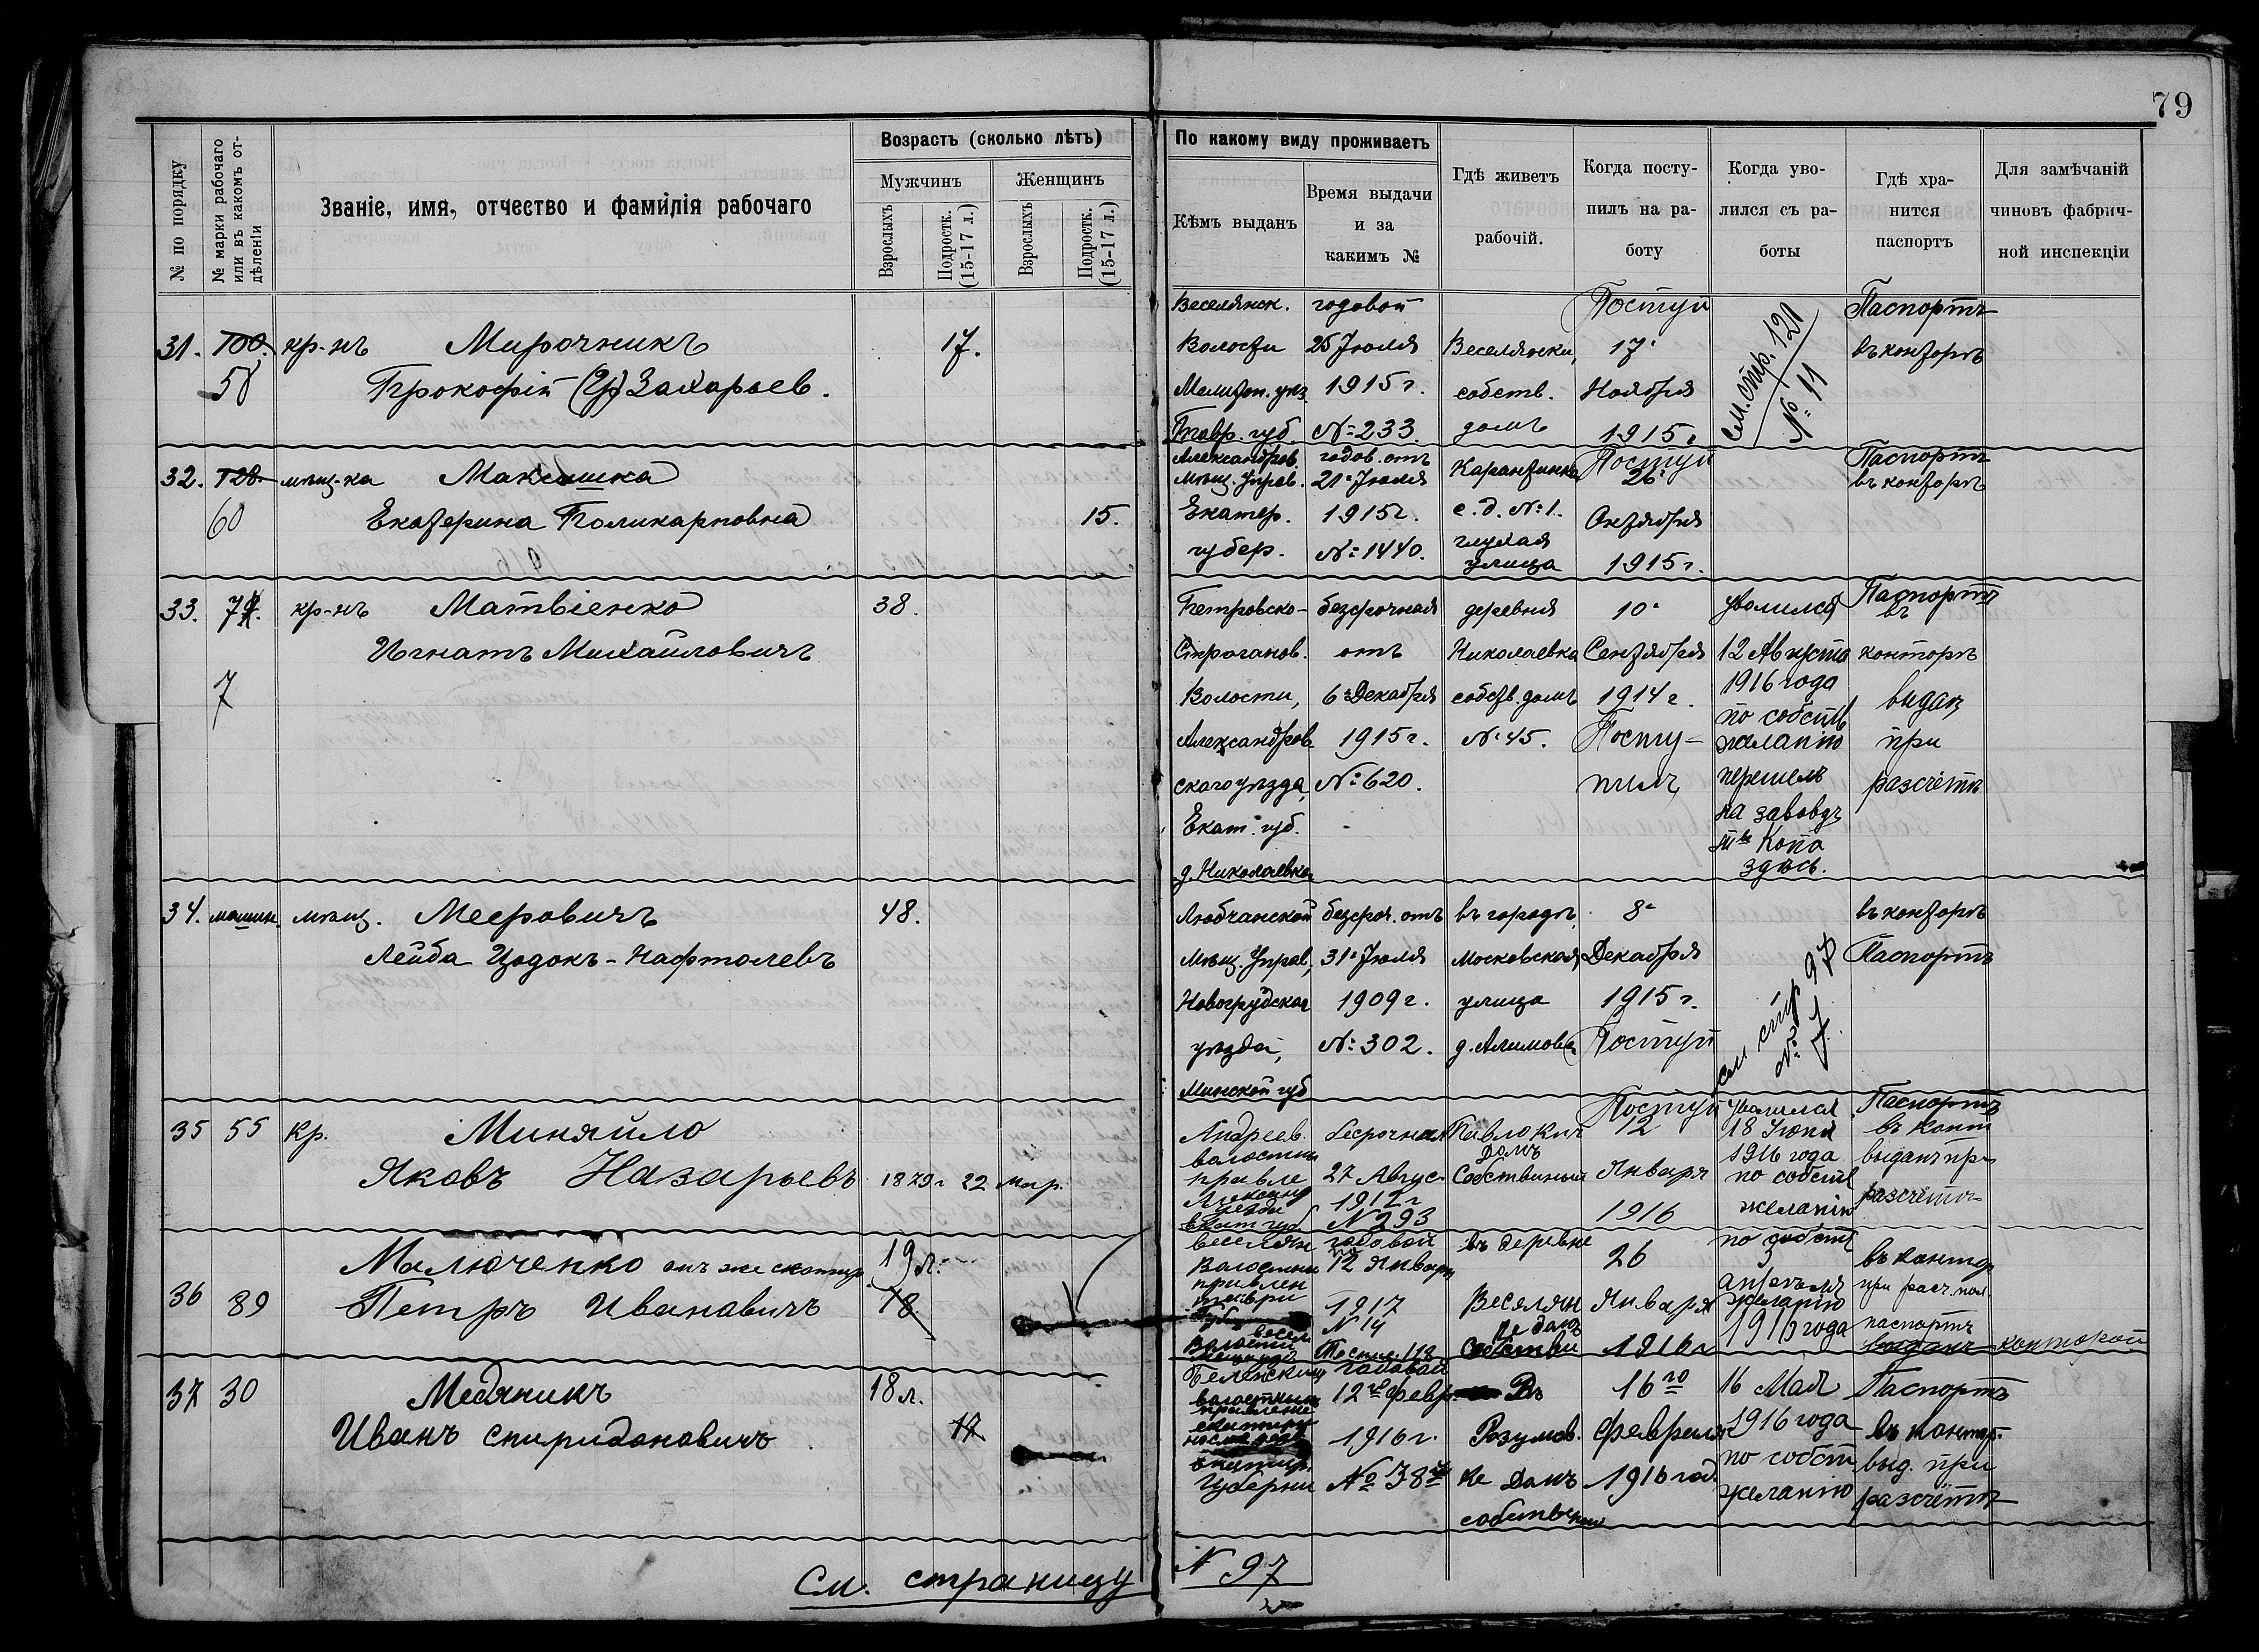 79
№ по порядку
№ марки рабочаго или въ какомъ отдѣленіи
Званіе, имя, отчество и фамилія рабочаго
Возрастъ (сколько лѣтъ)
Мужчинъ
Женщинъ
Взрослыхъ
Подростк. (15-17 л.)
Взрослыхъ
Подростк. (15-17 л.)
По какому виду проживаетъ
Кѣмъ выданъ
Время выдачи
и за
какимъ №
Гдѣ живетъ
рабочій.
Когда посту-
пилъ на ра-
боту
Когда уво-
лился съ ра-
боты
Гдѣ хра-
нится
паспортъ
Для замѣчаній
чиновъ фабрич-
ной инспекціи
31. 100. кр-нъ Мирочникъ 17.
58 Прокофій Захарьев.
Веселянск.
Волости
Мелитоп. уѣз.
Тавр. губ.
годовой
25 Іюля
1915 г.
№ 233.
Веселянки,
собств.
домъ
Поступи
17
Ноября
1915 г.
См. стр. 121
№ 11
Паспортъ
въ конторѣ
32. мѣщ-ка Максишка
60 Екатерина Поликарповна 15.
Александров.
Мѣщ. Управ.
Екатер.
губер.
годов. отъ
21 Іюля
1915 г.
№ 1440.
Карантинка
с. д. № 1.
глухая
улица
Поступи
26
Октября
1915 г.
Паспорт
въ конторѣ
33. кр-нъ Матвіенко 38.
Игнатъ Михайловичъ
7
Петровско-
Строганов.
Волости,
Александров-
скаго уѣзда,
Екат. губ.
д. Николаевка
безсрочная
отъ
6 Декабря
1915 г.
№ 620.
деревня
Николаевка
собств. домъ
№ 45.
10
Сентября
1914 г.
Посту-
пилъ
уволился
12 Августа
1916 года
по собств
желанію
перешелъ
на заводъ
Копа
здѣсь.
Паспортъ
въ
конторѣ
выдан
при
разсчётѣ
34. машин. мѣщ. Мееровичъ 48.
Лейба Цодокъ-Нафтолевъ
Любчанской
Мѣщ. Управ,
Новогрудскаг
уѣзда,
Минской губ
безсроч. отъ
31 Іюля
1909 г.
№ 302.
въ городѣ,
Московская
улица
д. Алимова
8
Декабря
1915 г.
Поступи
См стр 98
№ 7.
въ конторѣ
Паспортъ
35 55 Кр. Миняйло
Яковъ Назарьевъ 1879 г 22 мар.
Андреев.
волостны
правле
уезда
Екат губ
бесрочная
27 Август
1912 г
№ 293
Павлокич
домъ
Собствиный
Поступи
12
Январъ
1916
уволился
18 Іюня
1916 года
по собств
желанію
Паспортъ
въ конт
выданъ при
разсчётѣ
36 89 Малюченко онъ же 19 л.
Петръ Ивановичъ 18
веселян
Валостны
правлен
годовой
12 Январ
1917
№ 14
въ деревне
Веселян
ке дом
Собстви
26
Января
1916 г
по собст
3
апрѣля
желанію
1916 года
въ контор
при расч. пол.
паспортъ
выданъ конторой
37 30 Медяникъ 18 л.
Иванъ Спиридоновичъ 17
Беленскимъ
волостнымъ
правление
Губерни
годовай
12го февр.
1916 г.
№ 38
Въ
Розумов.
ке домъ
собственый
16го
февраля
1916 год.
16 Мая
1916 года
по собств
желанію
Паспортъ
въ контор.
выд. при
разсчётѣ
См. страницу № 97